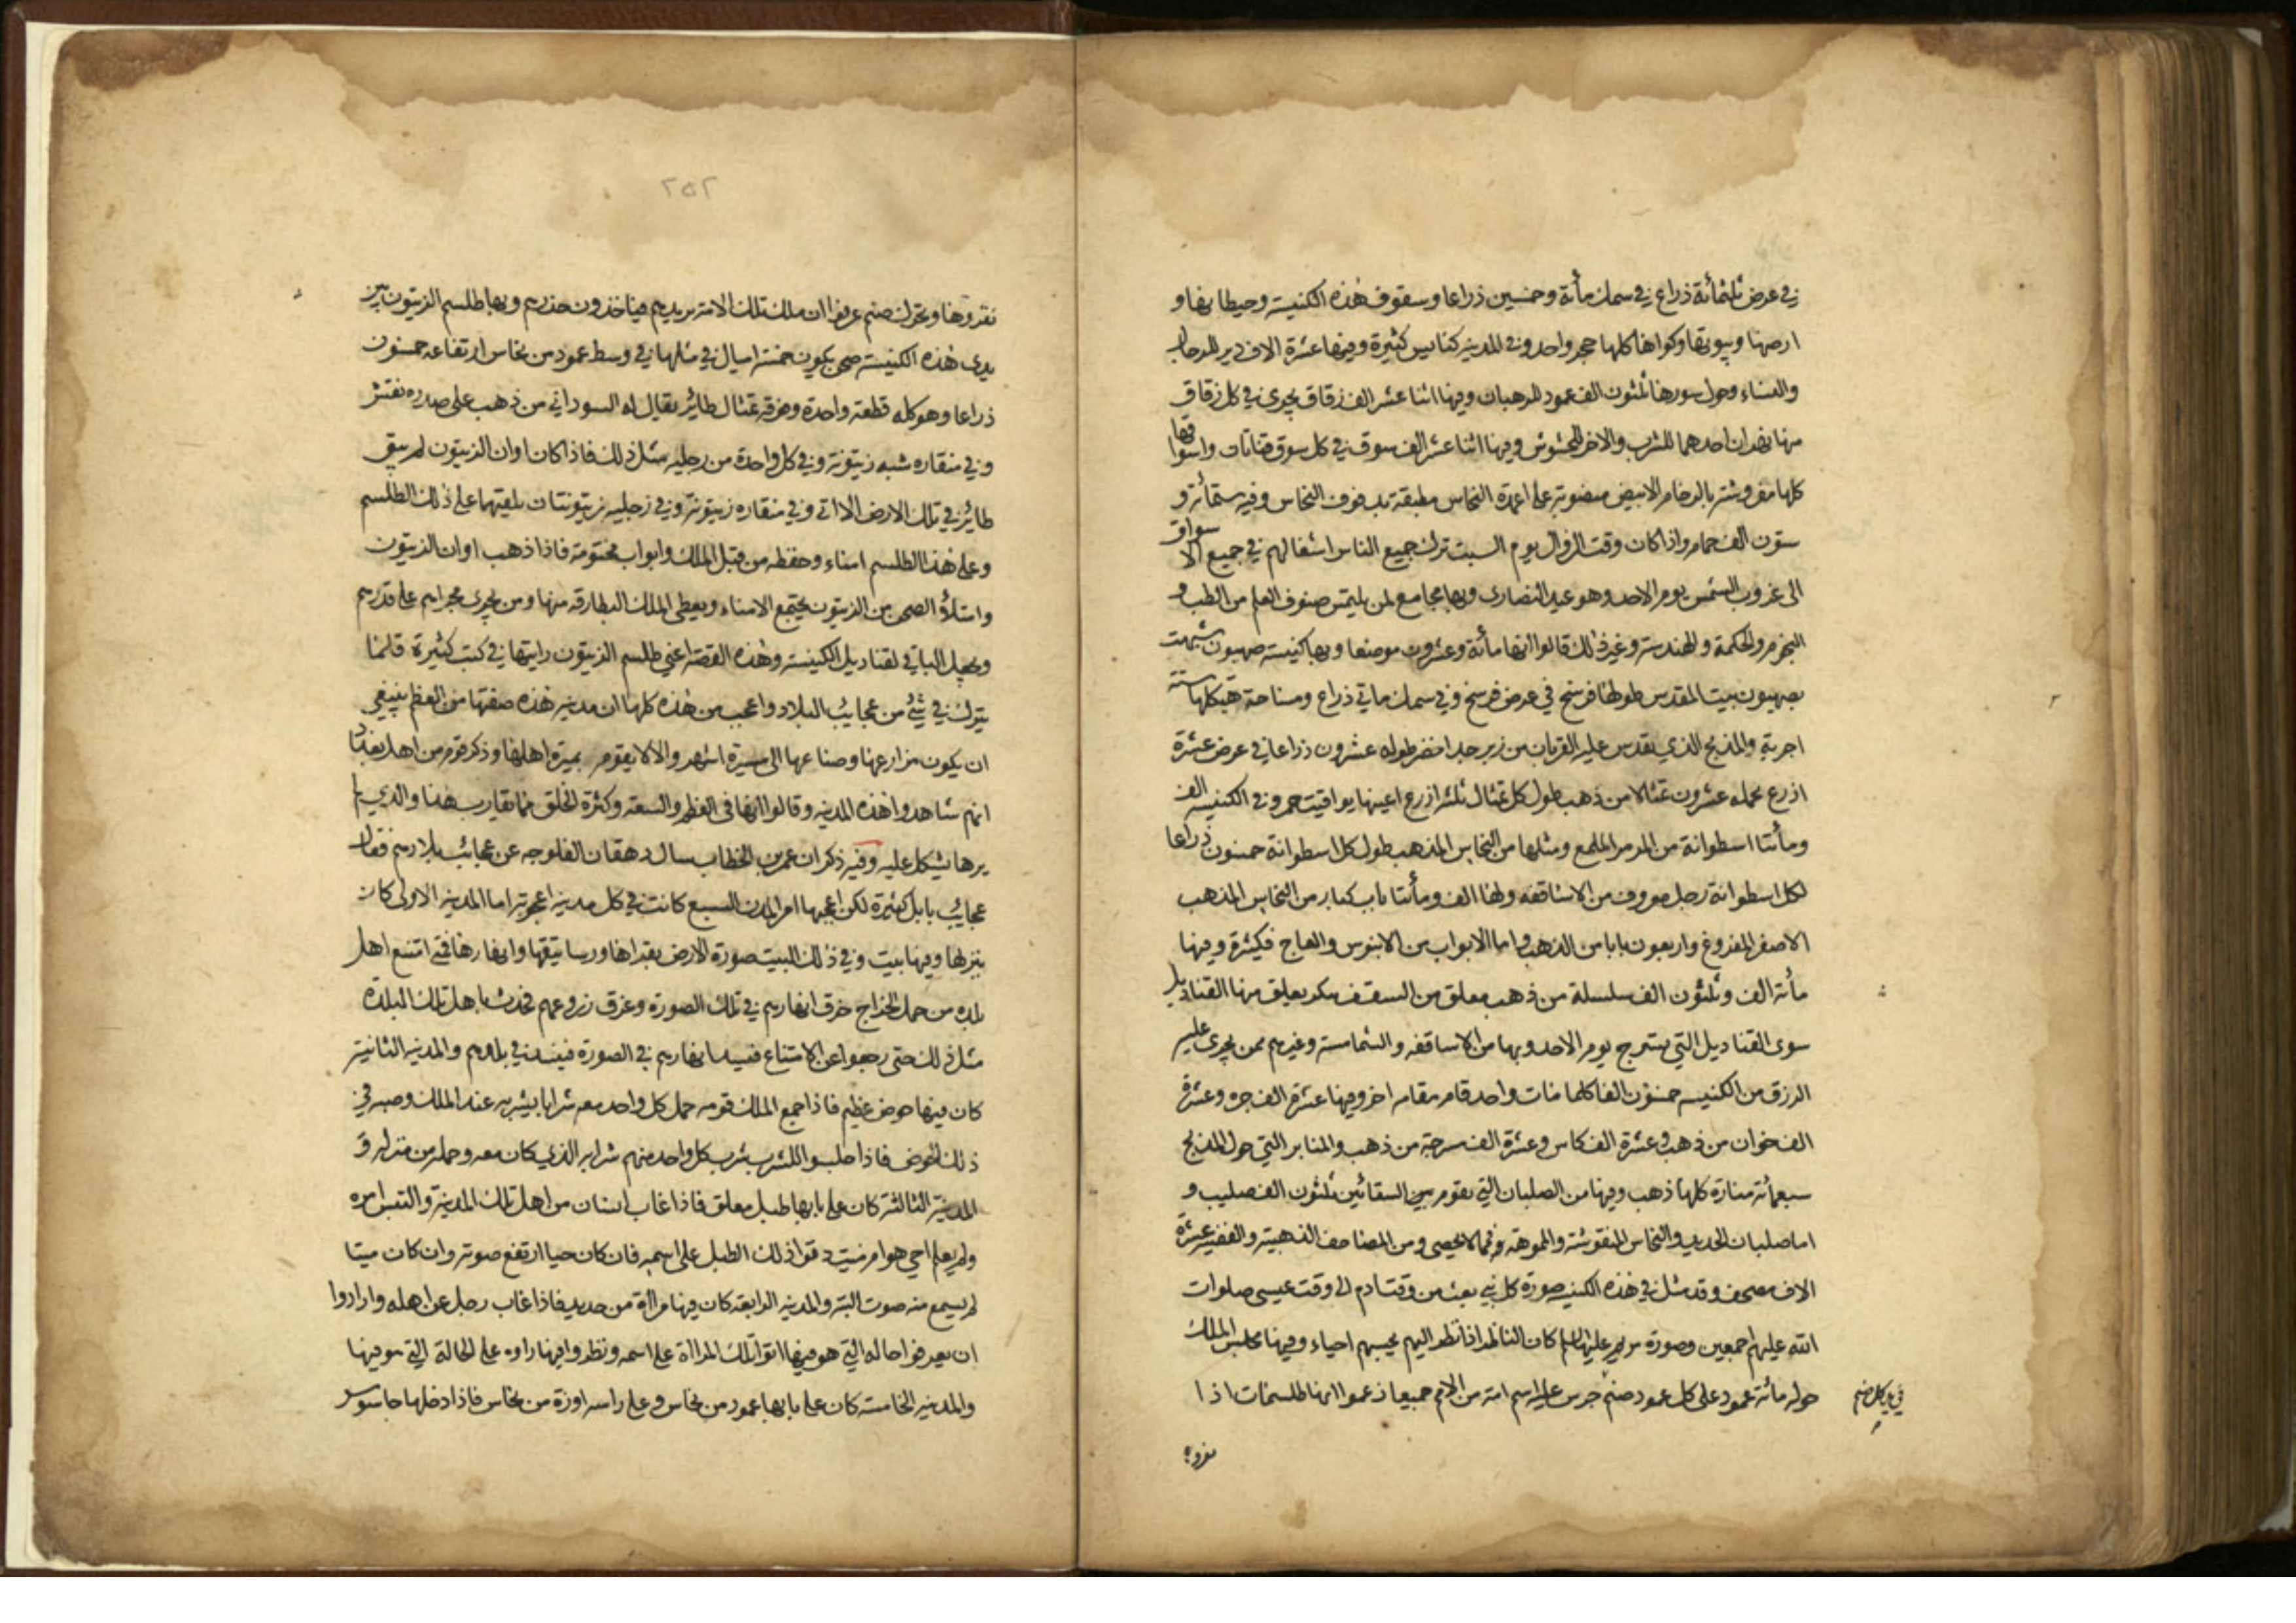 في عرض ثلثمائة ذراع في سمك مأئة وخمسين ذراعا وسقوف هذه الكنيسة وحيطانها و
ارضها وبيوتها وكواها كلها حجر واحد وفي المدينه كنايس كثيرة وفيها عشرة الاف دير للرجال
والنساء وحول سورها ثلثون الف عمود للرهبان وفيها اثنا عشر الف زقاق يجري في كل زقاق
منها نهران احدهما للشرب والاخر للحشوش وفيها اثنا عشر الف سوق في كل سوق قناتان واسواقها
كلها مفروشة بالرخام الابيض منصوبة على اعمدة النحاس مطبقة بدفوف النحاس وفيه ستمأئة و
ستون الف حمام واذا كان وقت الزوال يوم السبت ترك جميع الناس اشغالهم في جميع الاسواق
الى غروب الشمس يوم الاحد وهو عيد النصارى وبها مجامع لمن يلتمس صنوف العلم من الطب و
النجوم والحكمة والهندسة وغير ذلك قالوا انها مأئة وعشرون موضعا وبها كنيسة صهيون شبهت
بصهيون بيت المقدس طولها فرسخ في عرض فرسخ وفي سمك مأتي ذراع ومساحة هيكلها ستة
اجربة والمذبح الذي يقدس عليه القربان من زبرجد اخضر طوله عشرون ذراعا في عرض عشرة
اذرع يحمله عشرون تمثالا من ذهب طول كل تمثال ثلثة ازرع اعينها يواقيت حمر وفي الكنيسه الف
ومأئتا اسطوانة من المرمر الملمع ومثلها من النحاس المذهب طول كل اسطوانة خمسون ذراعا
لكل اسطوانة رجل معروف من الاساقفه ولها الف ومأئتا باب كبار من النحاس المذهب
الاصفر المفروغ واربعون بابا من الذهب واما الابواب من الابنوس والعاج فكثيرة وفيها
مأئة الف وثلثون الف سلسلة من ذهب معلق من السقف ببكر يعلق منها القناديل
سوى القناديل التي يسرج يوم الاحد وبها من الاساقفه والشمامسة وغيرهم ممن يجرى عليه
الرزق من الكنيسه خمسون الفا كلما مات واحد قام مقامه اخر وفيها عشرة الف جره وعشرة
الف خوان من ذهب وعشرة الف كاس وعشرة الف مسرجة من ذهب والمنابر التي حول المذبح
سبعمائة منارة كلها ذهب وفيها من الصلبان التي يقوم يوم السقائين ثلثون الف صليب و
اما صلبان الحديد والنحاس المنقوشة والمموهه فمما لا يحصى ومن المصاحف الذهبية والفضية عشرة
الاف مصحف وقد مثل في هذه الكنيسه صورة كل نبي بعث من وقت ادم الى وقت عيسى صلوات
الله عليهم اجمعين وصورة مريم عليها السلام كان الناظر اذا نظر اليهم يحسبهم احياء وفيها مجلس الملك
حوله مائة عمود على كل عمود صنم جرس عليه اسم امة من الامم جميعا زعموا انها طلسمات اذا
في يد كل صنم
نغزوها
٢٥٢
نغزوها وتحرك صنم عرفوا ان ملك تلك الامة يريدهم فياخذون حذرهم وبها طلسم الزيتون بين
يدي هذه الكنيسة صحن يكون خمسة اميال في مثلها في وسط عمود من نحاس ارتفاعه خمسون
ذراعا وهو كله قطعة واحدة وفوقه تمثال طائر يقال له السوداني من ذهب على صدره نقش
وفي منقاره شبه زيتونة وفي كل واحدة من رجليه مثل ذلك فاذا كان اوان الزيتون لم يبق
طائر في تلك الارض الا اتى وفي منقاره زيتونة وفي رجليه زيتونتان يلقيها على ذلك الطلسم
وعلى هذا الطلسم امناء وحفظه من قبل الملك وابواب مختومة فاذا ذهب اوان الزيتون
وامتلأ الصحن من الزيتون يجتمع الامناء ويعطي الملك البطارقه منها ومن يجري مجراهم على قدرهم
ويجعل الباقي لقناديل الكنيسة وهذه القصة اعني طلسم الزيتون رايتها في كتب كثيرة قلما
يترك في شئ من عجايب البلاد واعجب من هذه كلها ان مدينه هذه صفتها من العظم ينبغي
ان يكون مزارعها وضياعها الى مسيرة اشهر والا لا يقوم بميرة اهلها وذكر قوم من اهل بغداد
انهم شاهدوا هذه المدينه وقالوا انها في العظم والسعة وكثرة الخلق مما يقارب هذا والذي لم
يرها يشكل عليه وفيه ذكر ان عمر بن الخطاب سال دهقان الفلوجه عن عجائب بلادهم فقال
عجايب بابل كثيرة لكن اعجبها امر المدن السبع كانت في كل مدينه اعجوبة اما المدينه الاولى كان
ينزلها وفيها بيت وفي ذلك البيت صورة الارض بقراها ورساتيقها وانهارها فمتى امتنع اهل
بلده من حمل الخراج خرق انهارهم في تلك الصورة وغرق زروعهم فحدث باهل تلك البلدة
مثل ذلك حتى رجعوا عن الامتناع فيسد انهارهم في الصورة فينسد في بلدهم والمدينه الثانية
كان فيها حوض عظيم فاذا جمع الملك قومه حمل كل واحد معه شرابا يشربه عند الملك وصبه في
ذلك الحوض فاذا جلسوا للشرب شرب كل واحد منهم شرابه الذي كان معه وحمله من منزله و
المدينة الثالثة كان على بابها طبل معلق فاذا غاب انسان من اهل تلك المدينة والتبس امره
ولم يعلم احي هو ام ميت دقوا ذلك الطبل على اسمه فان كان حيا ارتفع صوته وان كان ميتا
لم يسمع منه صوت البته والمدينه الرابعة كان فيها مراة من حديد فاذا غاب رجل عن اهله وارادوا
ان يعرفوا حاله التي هو فيها اتوا تلك المراة على اسمه ونظروا فيها راوه على الحالة التي هو فيها
والمدينه الخامسة كان على بابها عمود من نحاس وعلى راسه اوزة من نحاس فاذا دخلها جاسوس